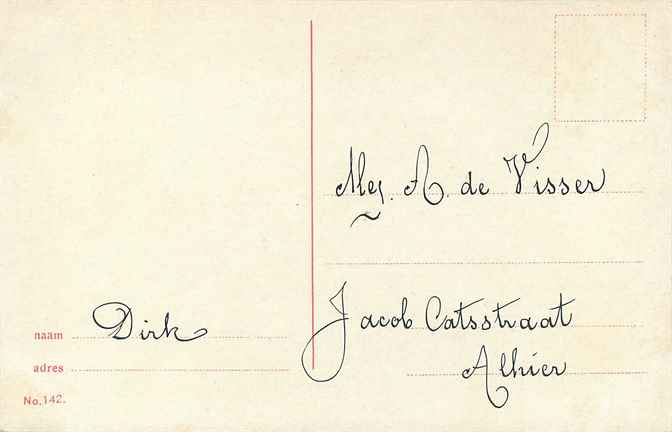 Mej. A. de Visser
Jacob Catsstraat
Alhier
naam Dirk
adres
No. 142.